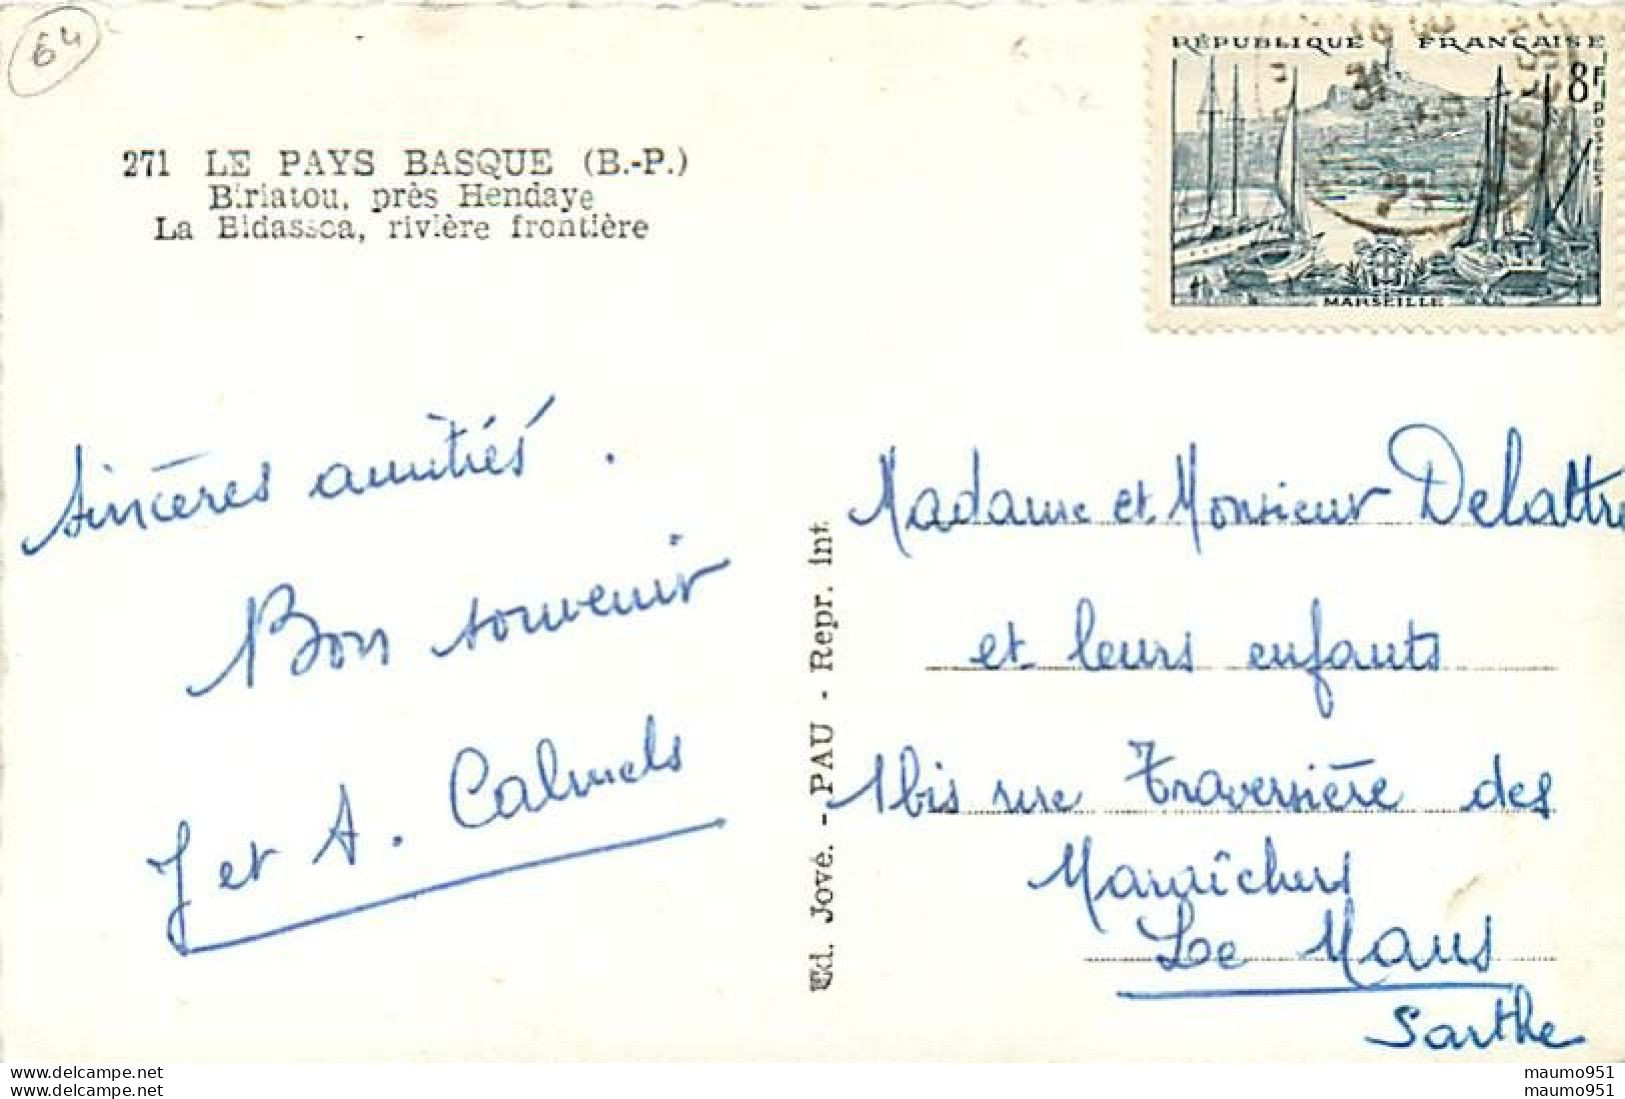 64
271 LE PAYS BASQUE (B.-P.)
Biriatou, près Hendaye
La Bidassoa, rivière frontière
RÉPUBLIQUE FRANÇAISE
8F
POSTES
MARSEILLE
Sincères amitiés.
Bon souvenir
J et A. Calmels
Ed. Jové. - PAU - Repr. int
Madame et Monsieur Delattre
et leurs enfants
1bis rue Traversière des
Maraîchers
Le Mans
Sarthe
maumo951
maumo951
maumo951
maumo951